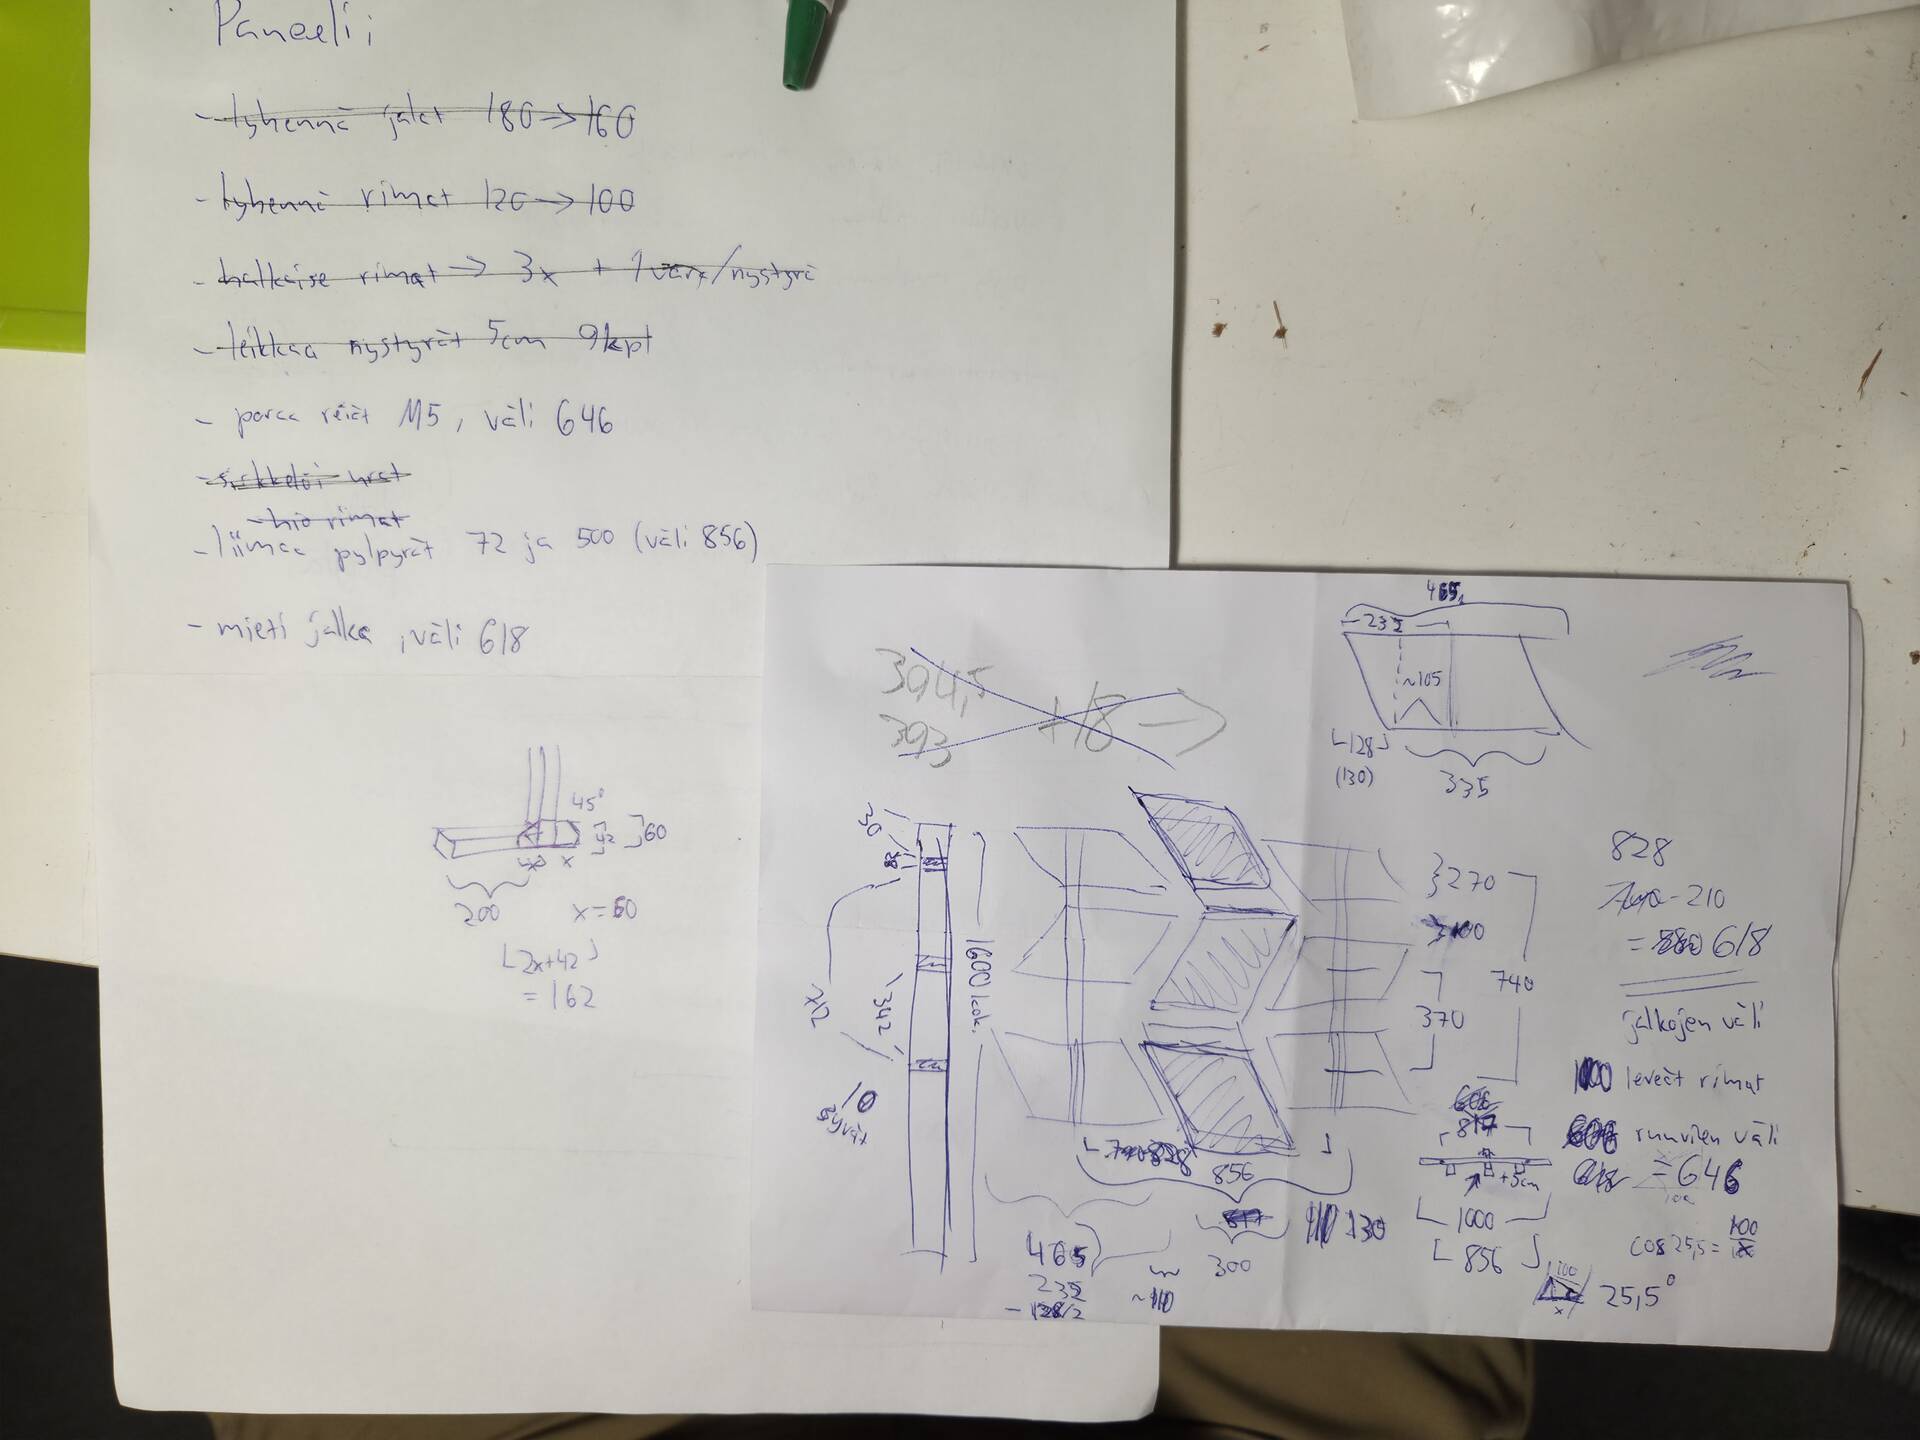 Paneeli;
- lyhennä jalat 180 → 160
- lyhennä rimat 120 → 100
- halkaise rimat → 3x + 1 vara/nystyrä
- leikkaa nystyrät 5cm 9kpl
- poraa reiät M5, väli 646
- hio rimat
- liimaa pylpyrät 72 ja 500 (väli 856)
- mieti jalka, väli 618
45°
42
60
x
200
x=60
2x+42
= 162
465
232
~105
128
(130)
335
394,5
393
+18 →
30
1600 kok.
212
342
10
syvät
270
100
740
370
828
-210
= 618
jalkojen väli
100 leveät rimat
ruuvien väli
= 646
817
+5cm
1000
856
cos 25,5 = 100/x
100
x
25,5°
828
856
130
300
465
232
- 128/2
~110